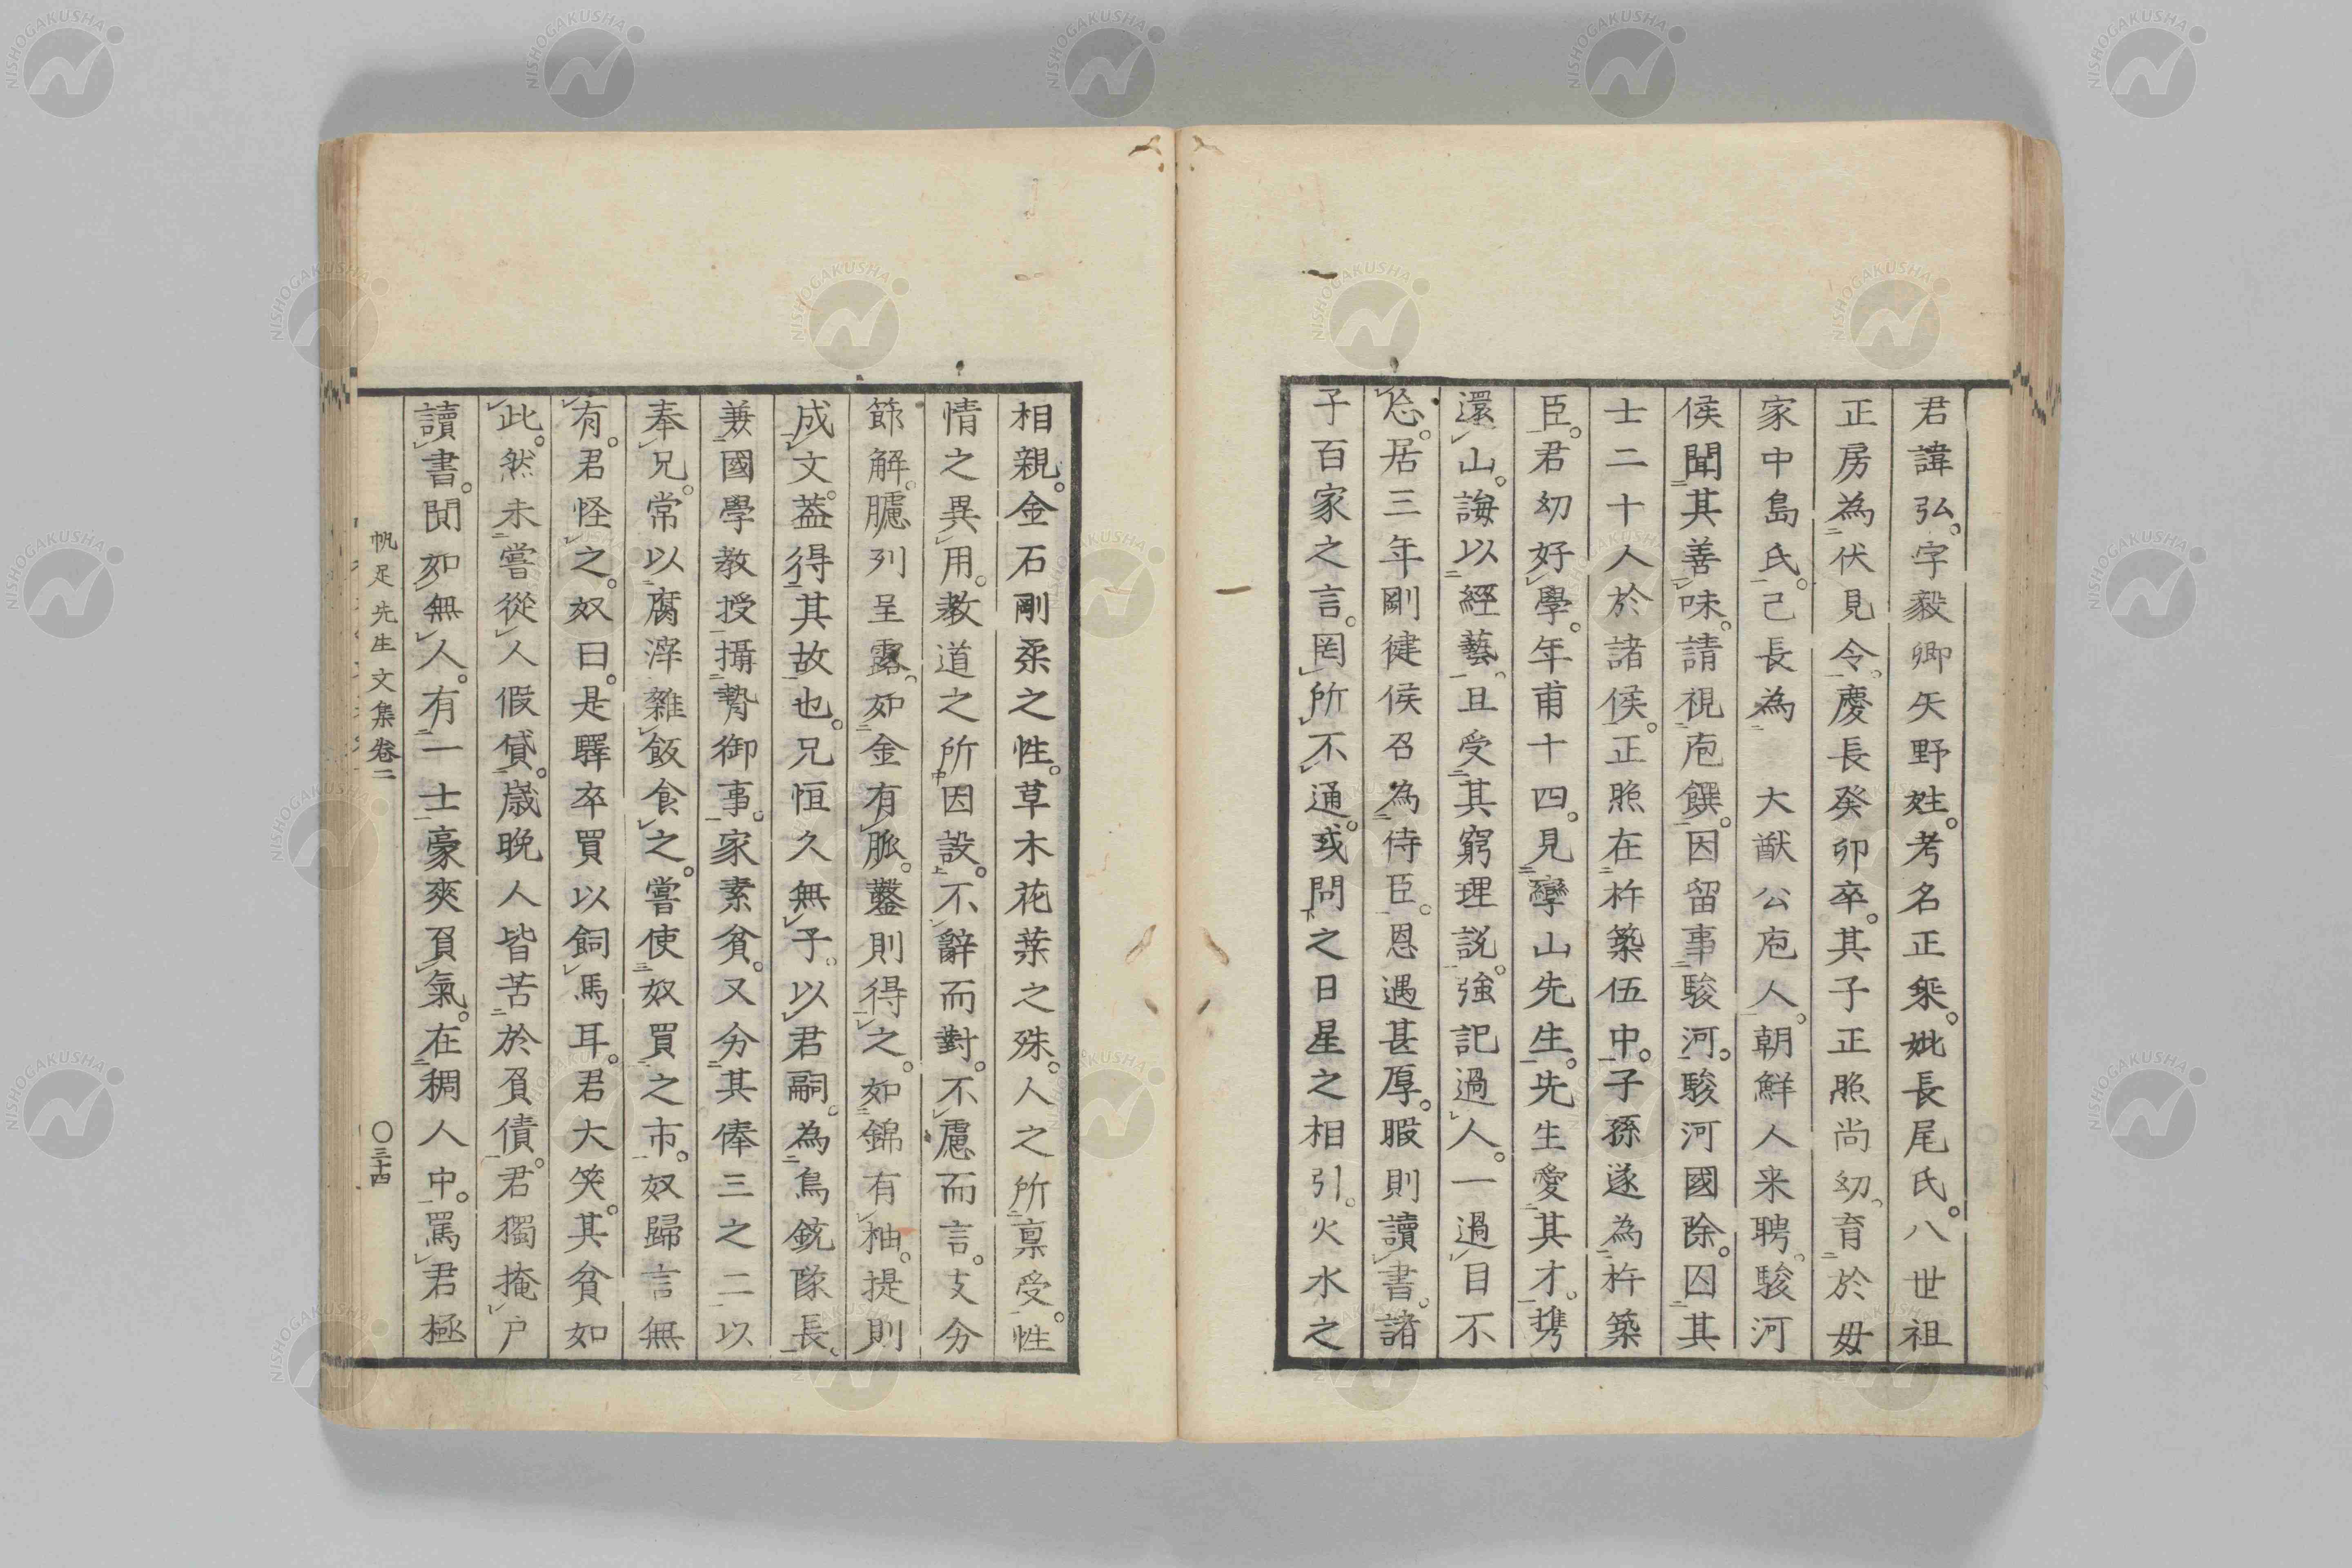 君諱弘。字毅卿矢野姓。考名正椉。妣長尾氏。八世祖
正房為伏見令。慶長癸卯卒。其子正照尚幼。育於毋
家中島氏。己長為　大猷公庖人。朝鮮人来聘。駿河
侯聞其善味。請視庖饌。因留事駿河。駿河國除。因其
士二十人於諸侯。正照在杵築伍中。子孫遂為杵築
臣。君幼好學。年甫十四。見孿山先生。先生愛其才。携
還山。誨以經藝。且受其窮理説。強記過人。一過目不
忘。居三年剛健侯召為侍臣。恩遇甚厚。暇則讀書。諸
子百家之言。罔所不通。或問之日星之相引。火水之
相親。金石剛柔之性。草木花葉之殊。人之所稟受。性
情之異用。教道之所因設。不辭而對。不慮而言。支分
節解。臚列呈露。如金有脈。鑿則得之。如錦有柚。提則
成文。葢得其故也。兄恒久無子。以君嗣。為鳥銃隊長。
兼國學教授攝贄御事。家素貧。又分其俸三之二以
奉兄。常以腐滓雜飯食之。嘗使奴買之市。奴歸言無
有。君怪之。奴曰。是驛卒買以飼馬耳。君大笑。其貧如
此。然未嘗從人假貸。歳晩人皆苦於負債。君獨掩戸
讀書。閴如無人。有一士豪爽負氣。在稠人中。罵君極
帆足先生文集卷二
〇三十四